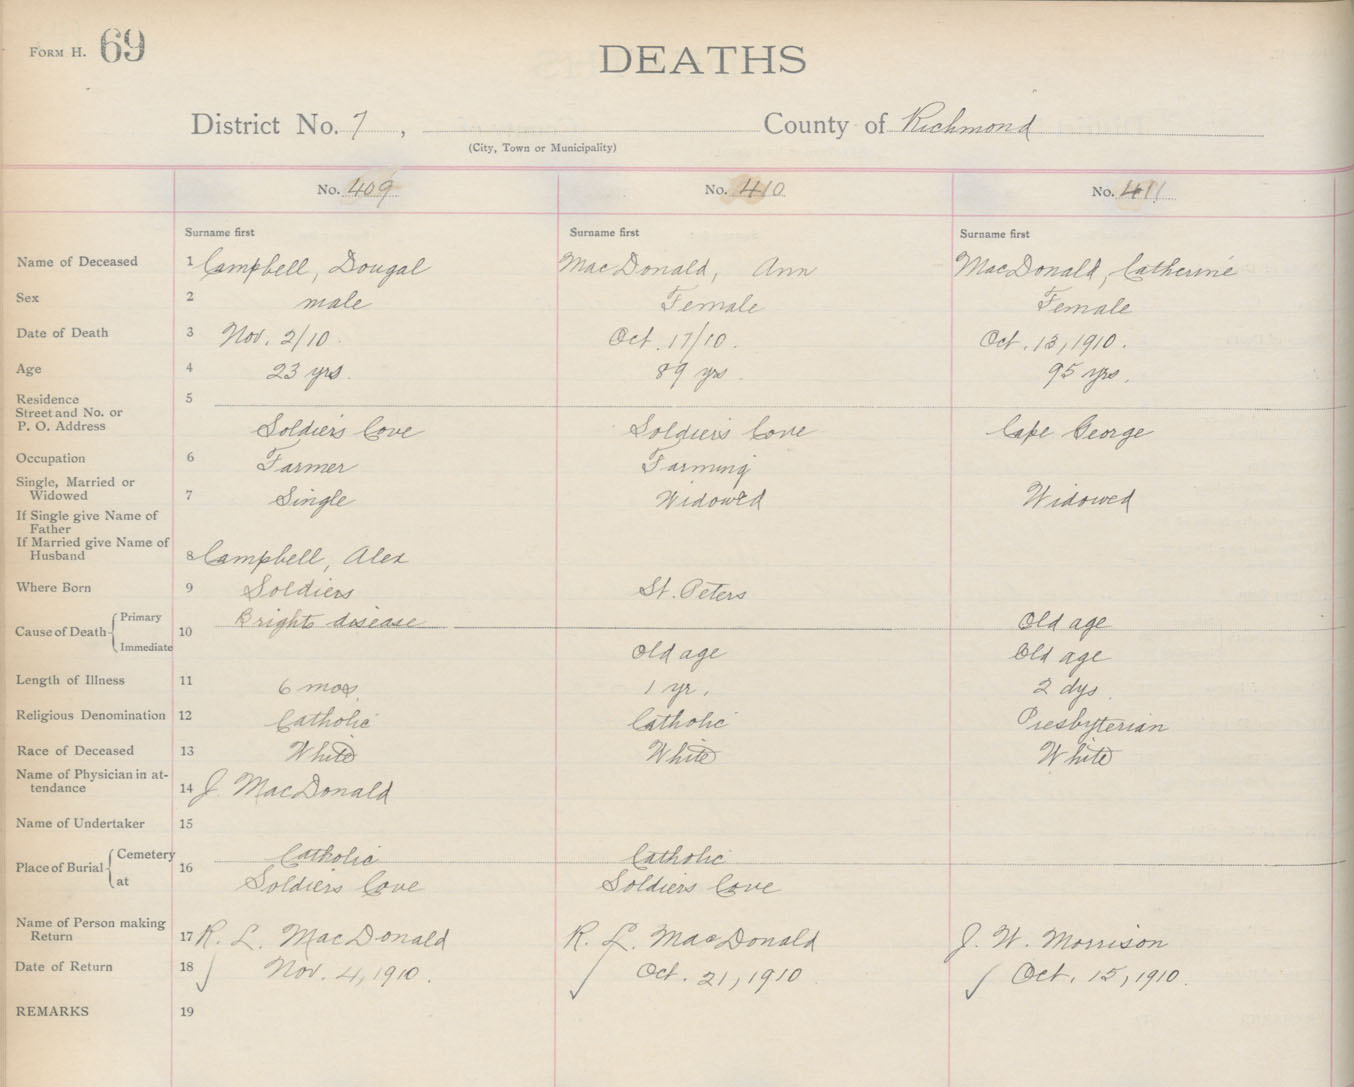 FORM H. 69
DEATHS
District No. 7 , County of Richmond
(City, Town or Municipality)
No. 409 No. 410 No. 411
Surname first Surname first Surname first
Name of Deceased 1 Campbell, Dougal MacDonald, Ann MacDonald, Catherine
Sex 2 male Female Female
Date of Death 3 Nov. 2/10. Oct. 17/10. Oct. 13, 1910.
Age 4 23 yrs. 89 yrs. 95 yrs.
Residence 5
Street and No. or
P. O. Address Soldiers Cove Soldiers Cove Cape George
Occupation 6 Farmer Farming
Single, Married or
Widowed 7 Single Widowed Widowed
If Single give Name of
Father
If Married give Name of
Husband 8 Campbell, Alex
Where Born 9 Soldiers St. Peters
Cause of Death Primary 10 Brights disease Old age
Immediate Old age Old age
Length of Illness 11 6 mos. 1 yr. 2 dys.
Religious Denomination 12 Catholic Catholic Presbyterian
Race of Deceased 13 White White White
Name of Physician in at-
tendance 14 J MacDonald
Name of Undertaker 15
Place of Burial Cemetery 16 Catholic Catholic
at Soldiers Cove Soldiers Cove
Name of Person making
Return 17 R. L. MacDonald R. L. MacDonald J. W. Morrison
Date of Return 18 Nov. 4, 1910. Oct. 21, 1910 Oct. 15, 1910.
REMARKS 19